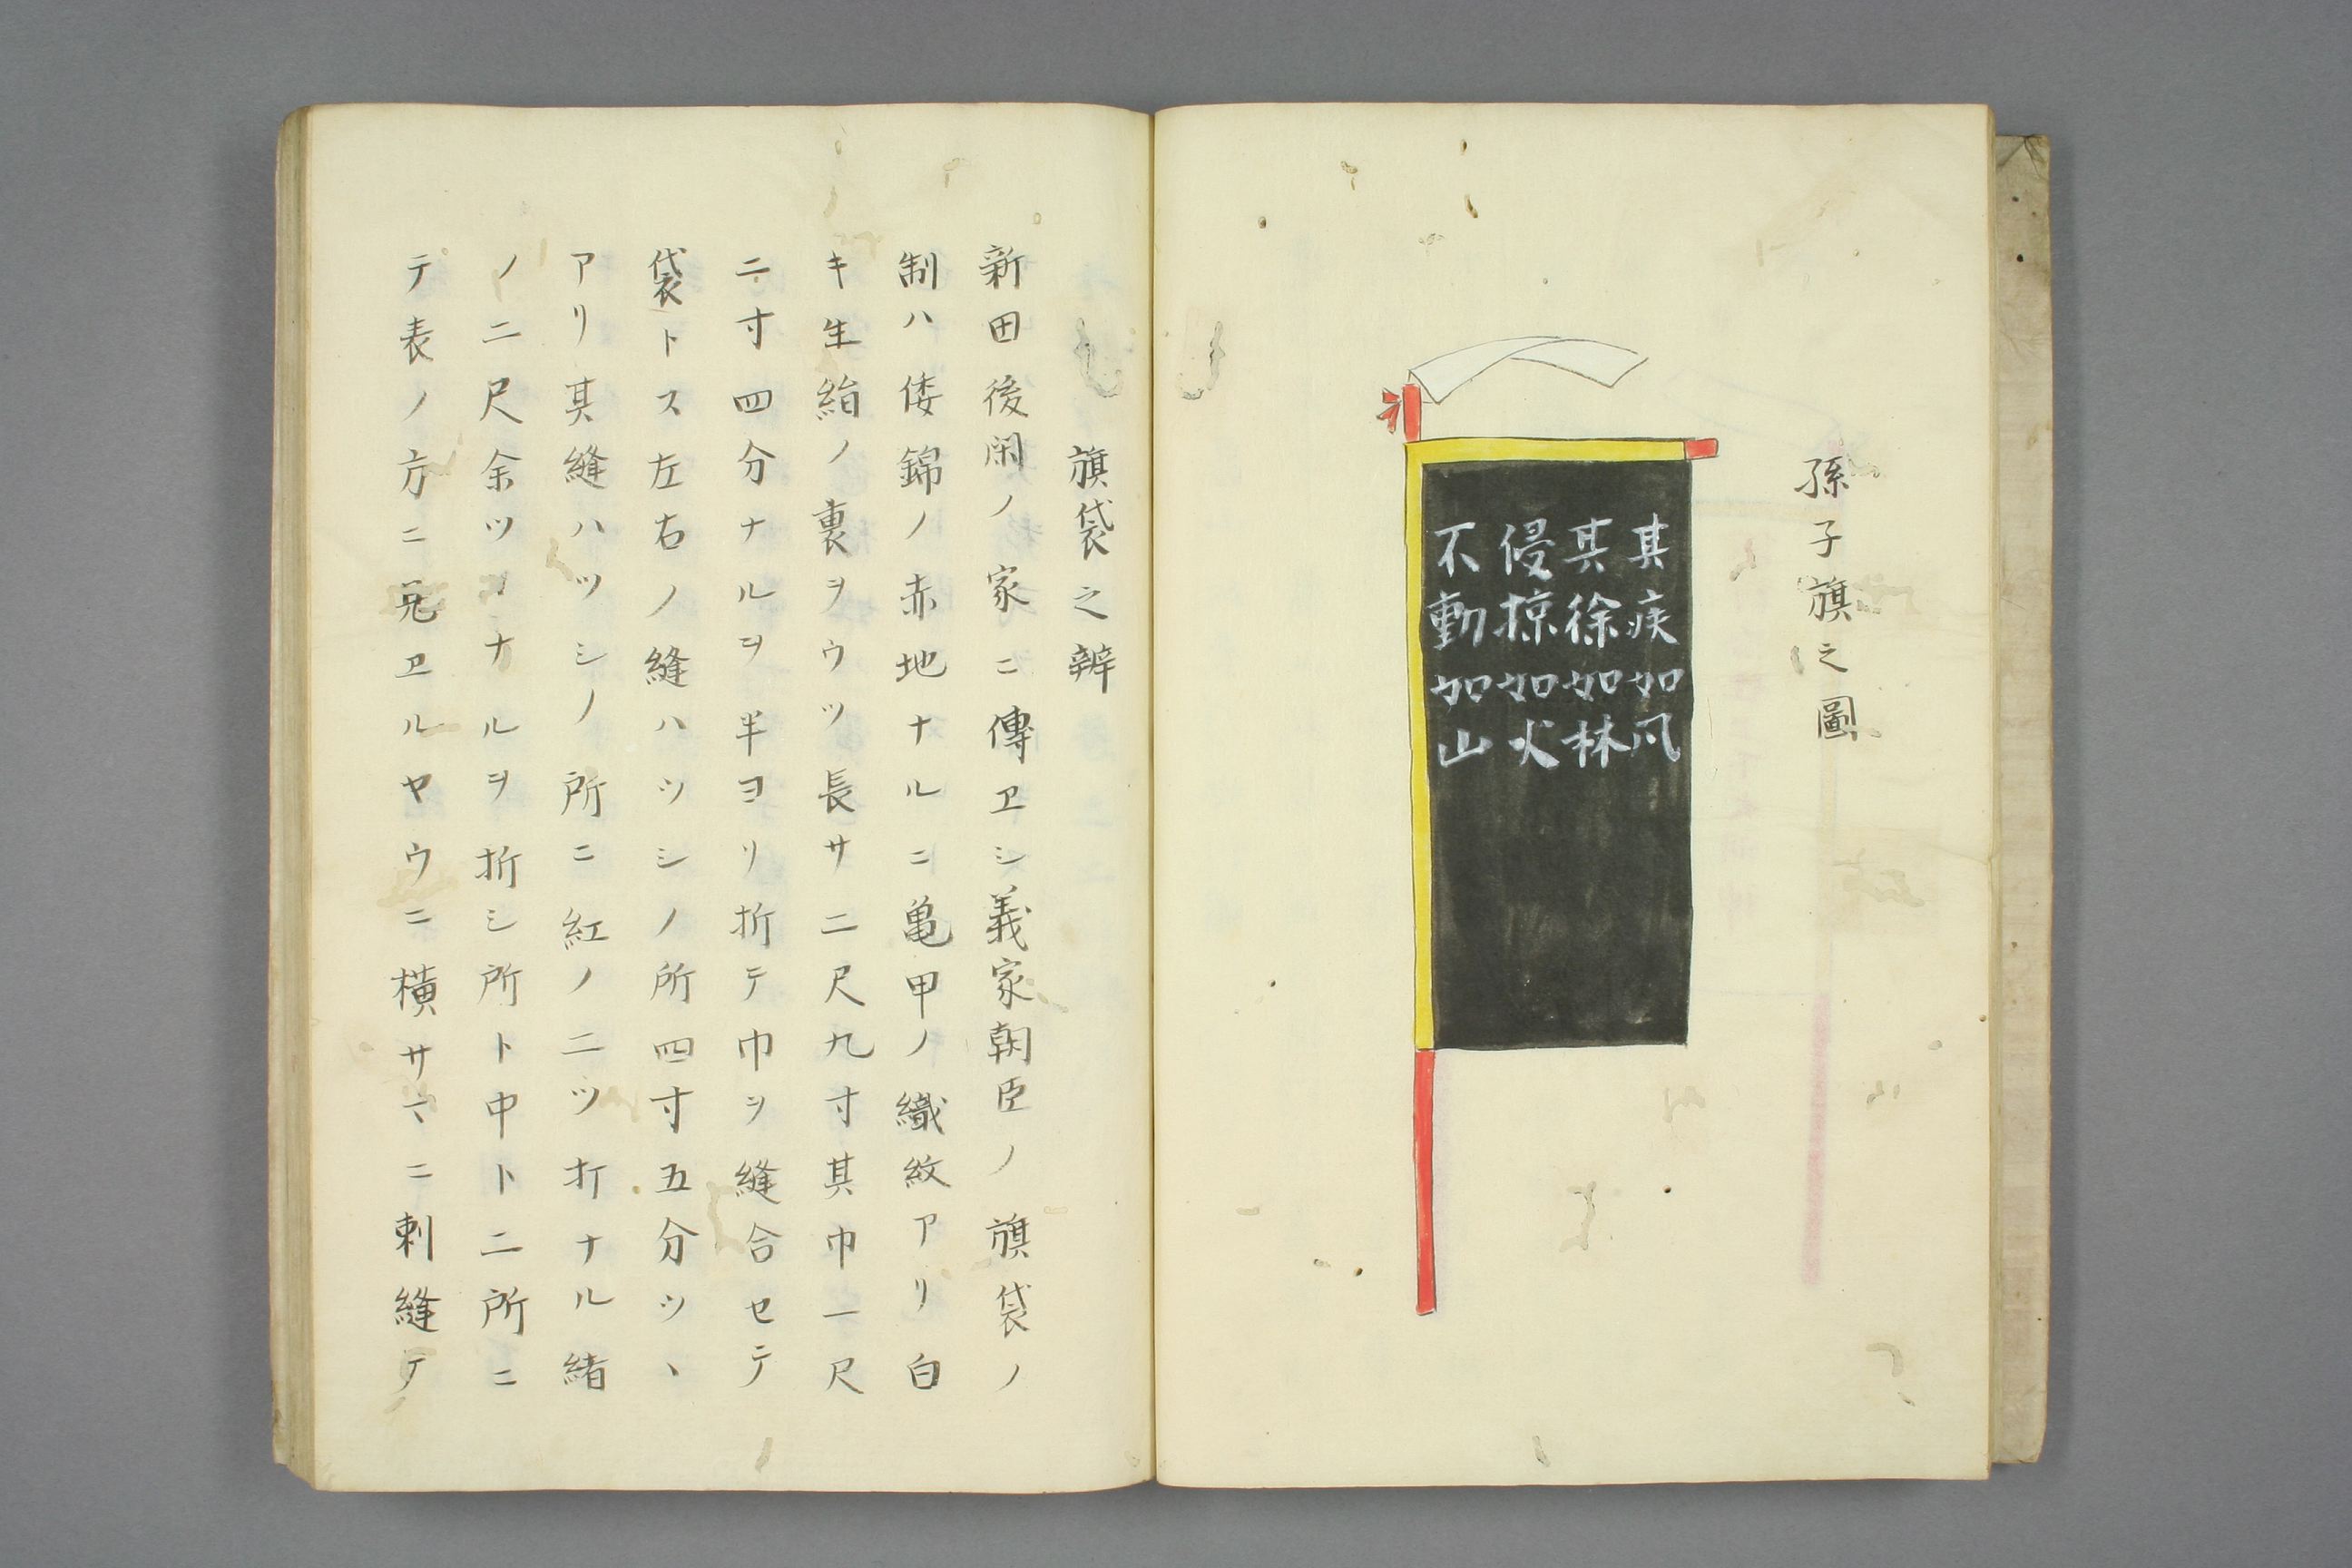 孫子旗之圖
其疾如風
其徐如林
侵掠如火
不動如山
旗袋之辨
新田後閑ノ家ニ傳ヱシ義家朝臣ノ旗袋ノ
制ハ倭錦ノ赤地ナルニ亀甲ノ織紋アリ白
キ生絹ノ裏ヲウツ長サ二尺九寸其巾一尺
二寸四分ナルヲ半ヨリ折テ巾ヲ縫合セテ
袋トス左右ノ縫ハツシノ所四寸五分ツヽ
アリ其縫ハツシノ所ニ紅ノ二ツ打ナル緒
ノ二尺余ツヽナルヲ折シ所ト中ト二所ニ
テ表ノ方ニ見ヱルヤウニ横サマニ刺縫テ